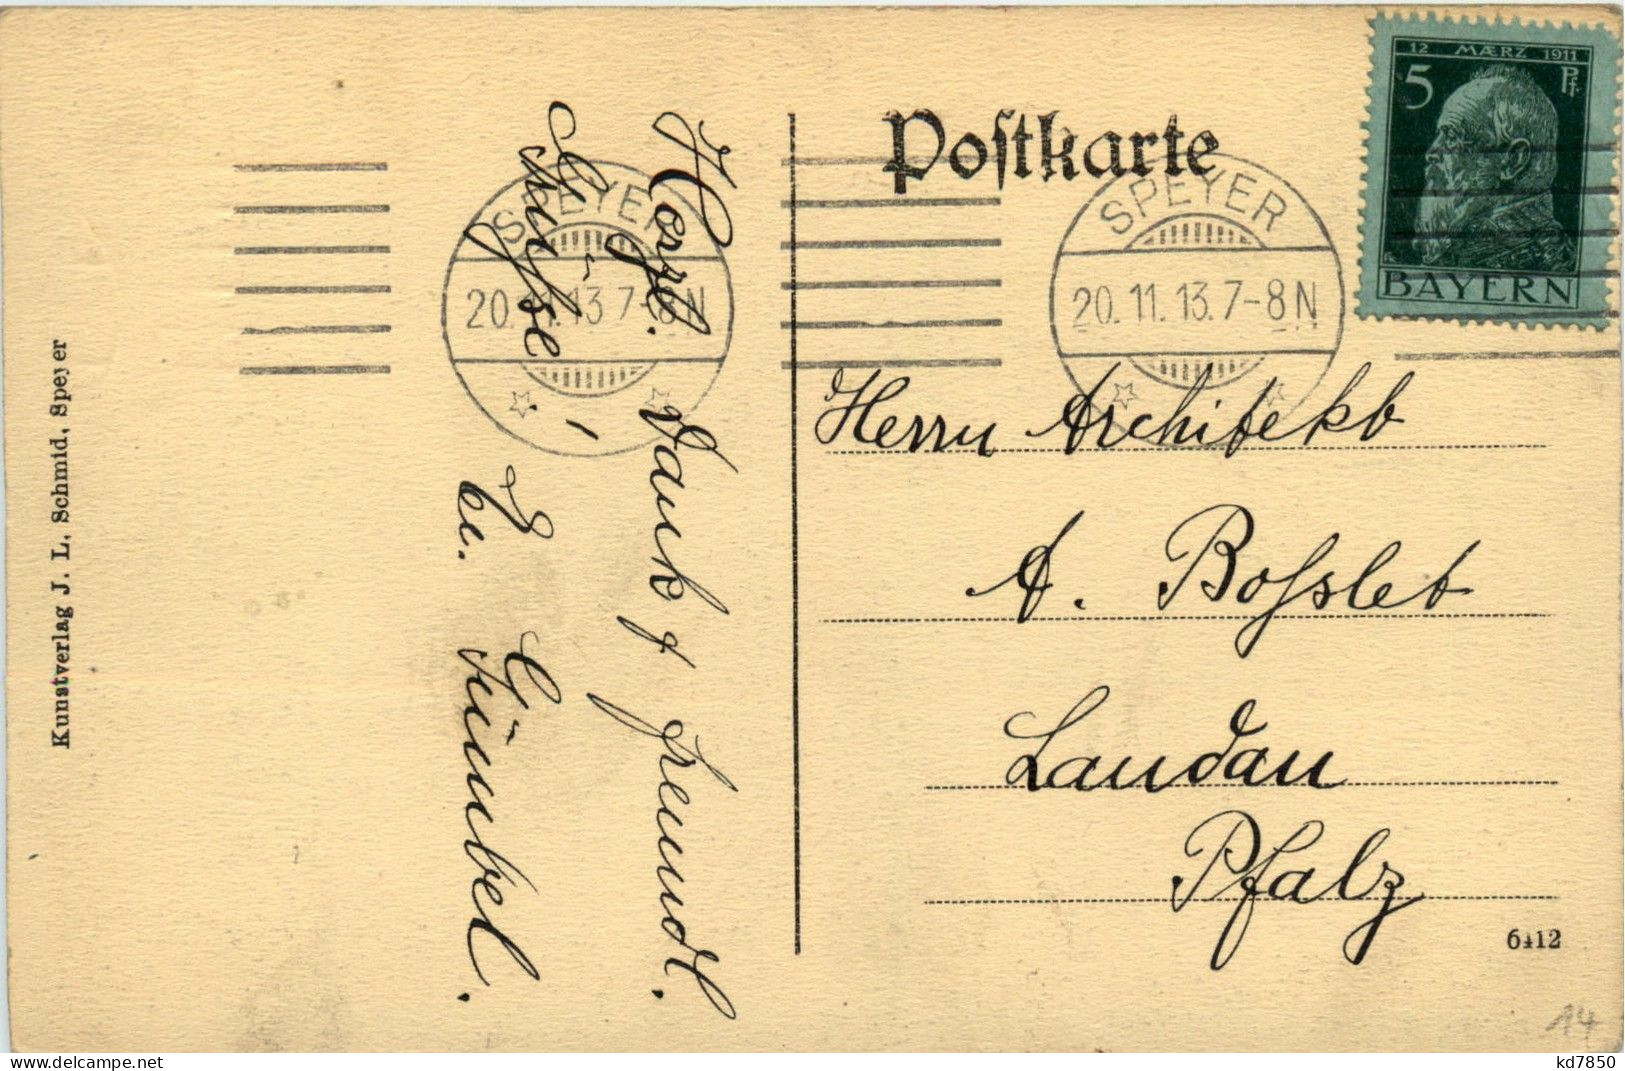 Postkarte
12 MÆRZ 1911
5 Pf
BAYERN
SPEYER
20.11.13.7-8N
SPEYER
20.11.13 7-8N
Herrn Architekt
A. Boſslet
Landau
Pfalz
6412
Herzl. Dank & freundl.
Grüße
Gümbel.
Kunstverlag J. L. Schmid, Speyer
14
delcampe.net
kd7850